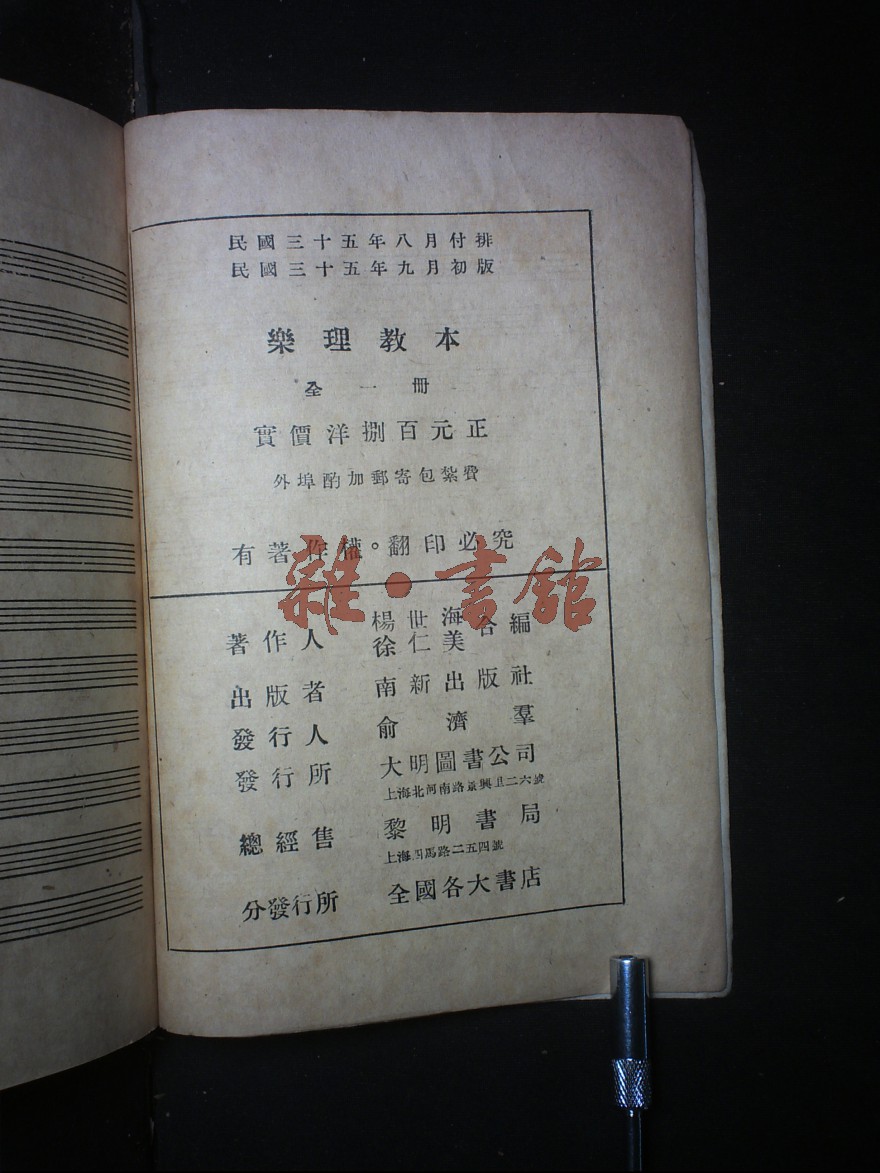 民國三十五年八月付排
民國三十五年九月初版
樂理教本
全一冊
實價洋捌百元正
外埠酌加郵寄包紮費
有著作權。翻印必究
雜·書館
著作人 楊世海 徐仁美 合編
出版者 南新出版社
發行人 俞濟羣
發行所 大明圖書公司
上海北河南路景興里二六號
總經售 黎明書局
上海四馬路二五四號
分發行所 全國各大書店